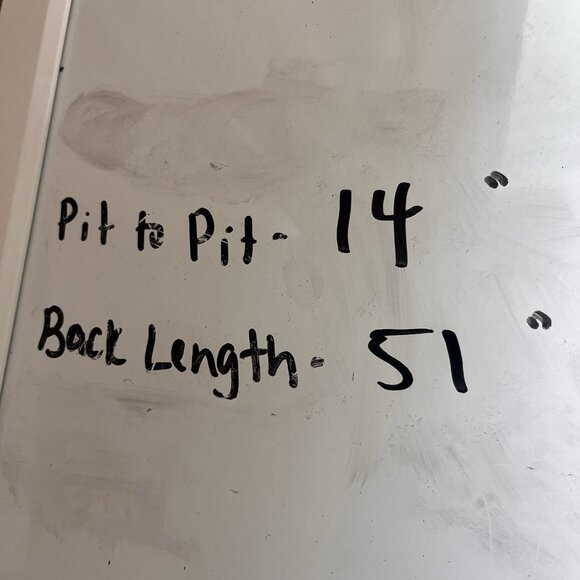 Pit to Pit - 14 "
Back Length - 51 "